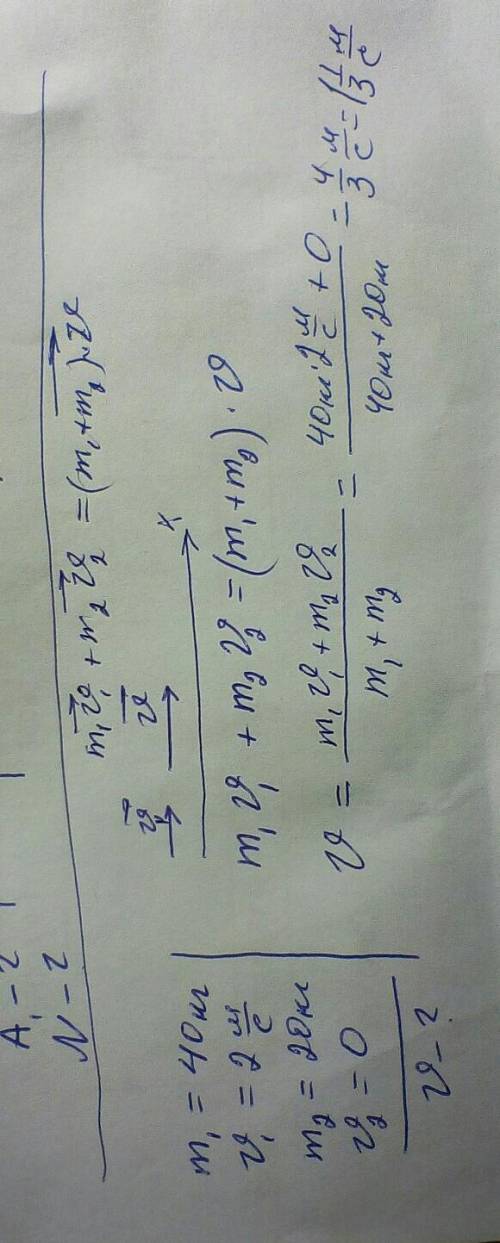 A₁ - ?
N - ?
m₁ = 40 кг
υ₁ = 2 м/с
m₂ = 20 кг
υ₂ = 0
υ - ?
m₁υ⃗₁ + m₂υ⃗₂ = (m₁ + m₂)·υ⃗
υ⃗₁ υ⃗
x
m₁υ₁ + m₂υ₂ = (m₁ + m₂)·υ
υ = (m₁υ₁ + m₂υ₂)/(m₁ + m₂) = (40 кг·2 м/с + 0)/(40 кг + 20 кг) = 4/3 м/с = 1 1/3 м/с